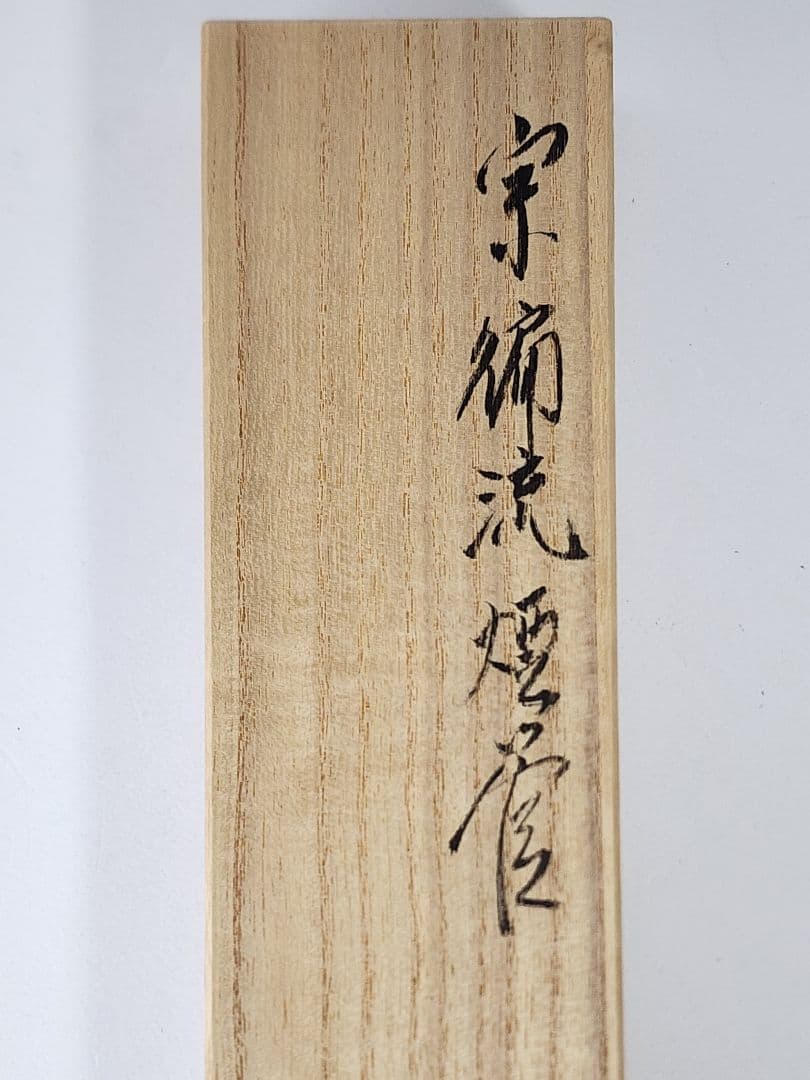 宗徧流煙管